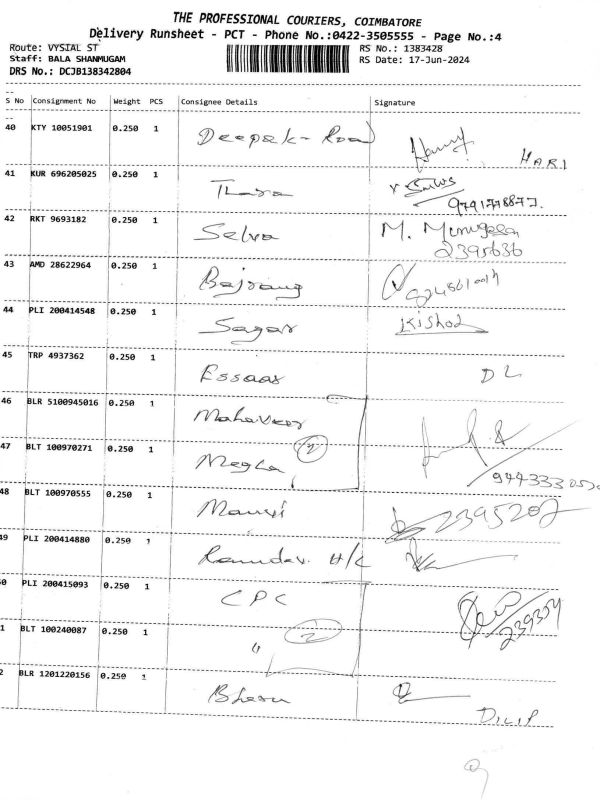 THE PROFESSIONAL COURIERS, COIMBATORE
Delivery Runsheet - PCT - Phone No.:0422-3505555 - Page No.:4
Route: VYSIAL ST RS No.: 1383428
Staff: BALA SHANMUGAM RS Date: 17-Jun-2024
DRS No.: DCJB138342804
S No Consignment No Weight PCS Consignee Details Signature
40 KTY 10051901 0.250 1 Deepak - HARI
41 KUR 696205025 0.250 1
42 RKT 9693182 0.250 1 Selva M.
2395636
43 AMD 28622964 0.250 1 Bajrang
44 PLI 200414548 0.250 1 Sagar Kishod
45 TRP 4937362 0.250 1 Essaar DL
46 BLR 5100945016 0.250 1 Mahaveer
47 BLT 100970271 0.250 1 Megha 2
48 BLT 100970555 0.250 1 2395202
49 PLI 200414880 0.250 1 Ramdev. H/C
0 PLI 200415093 0.250 1 CPC
1 BLT 100240087 0.250 1 " 2
2 BLR 1201220156 0.250 1 DILIP